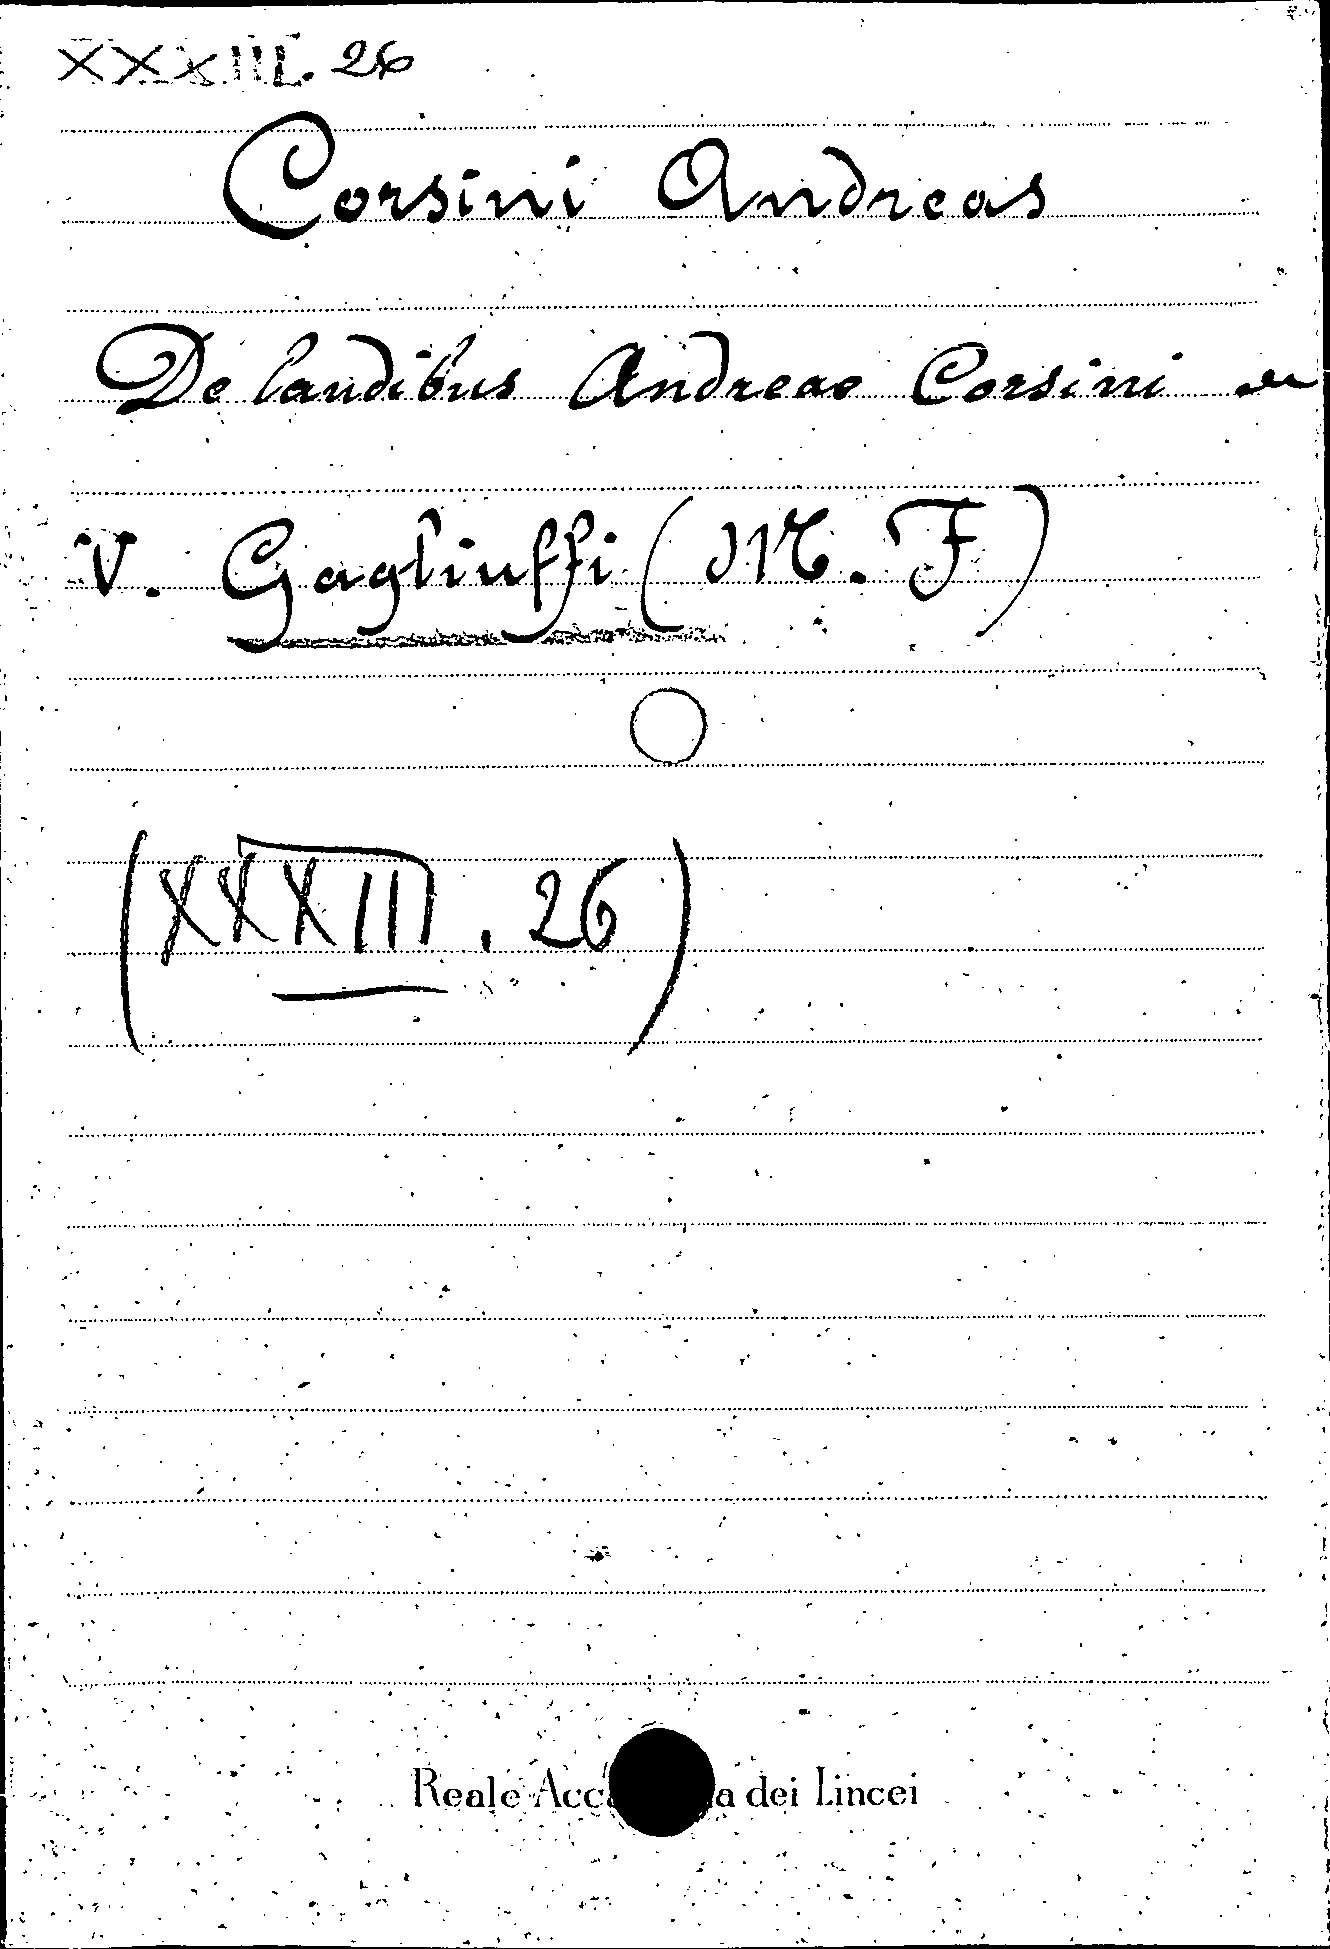 XXXIII. 26
Corsini Andreas
De laudibus Andreae Corsini
V. Gagliuffi (M. F)
(XXXIII. 26)
Reale Acca a dei Lincei